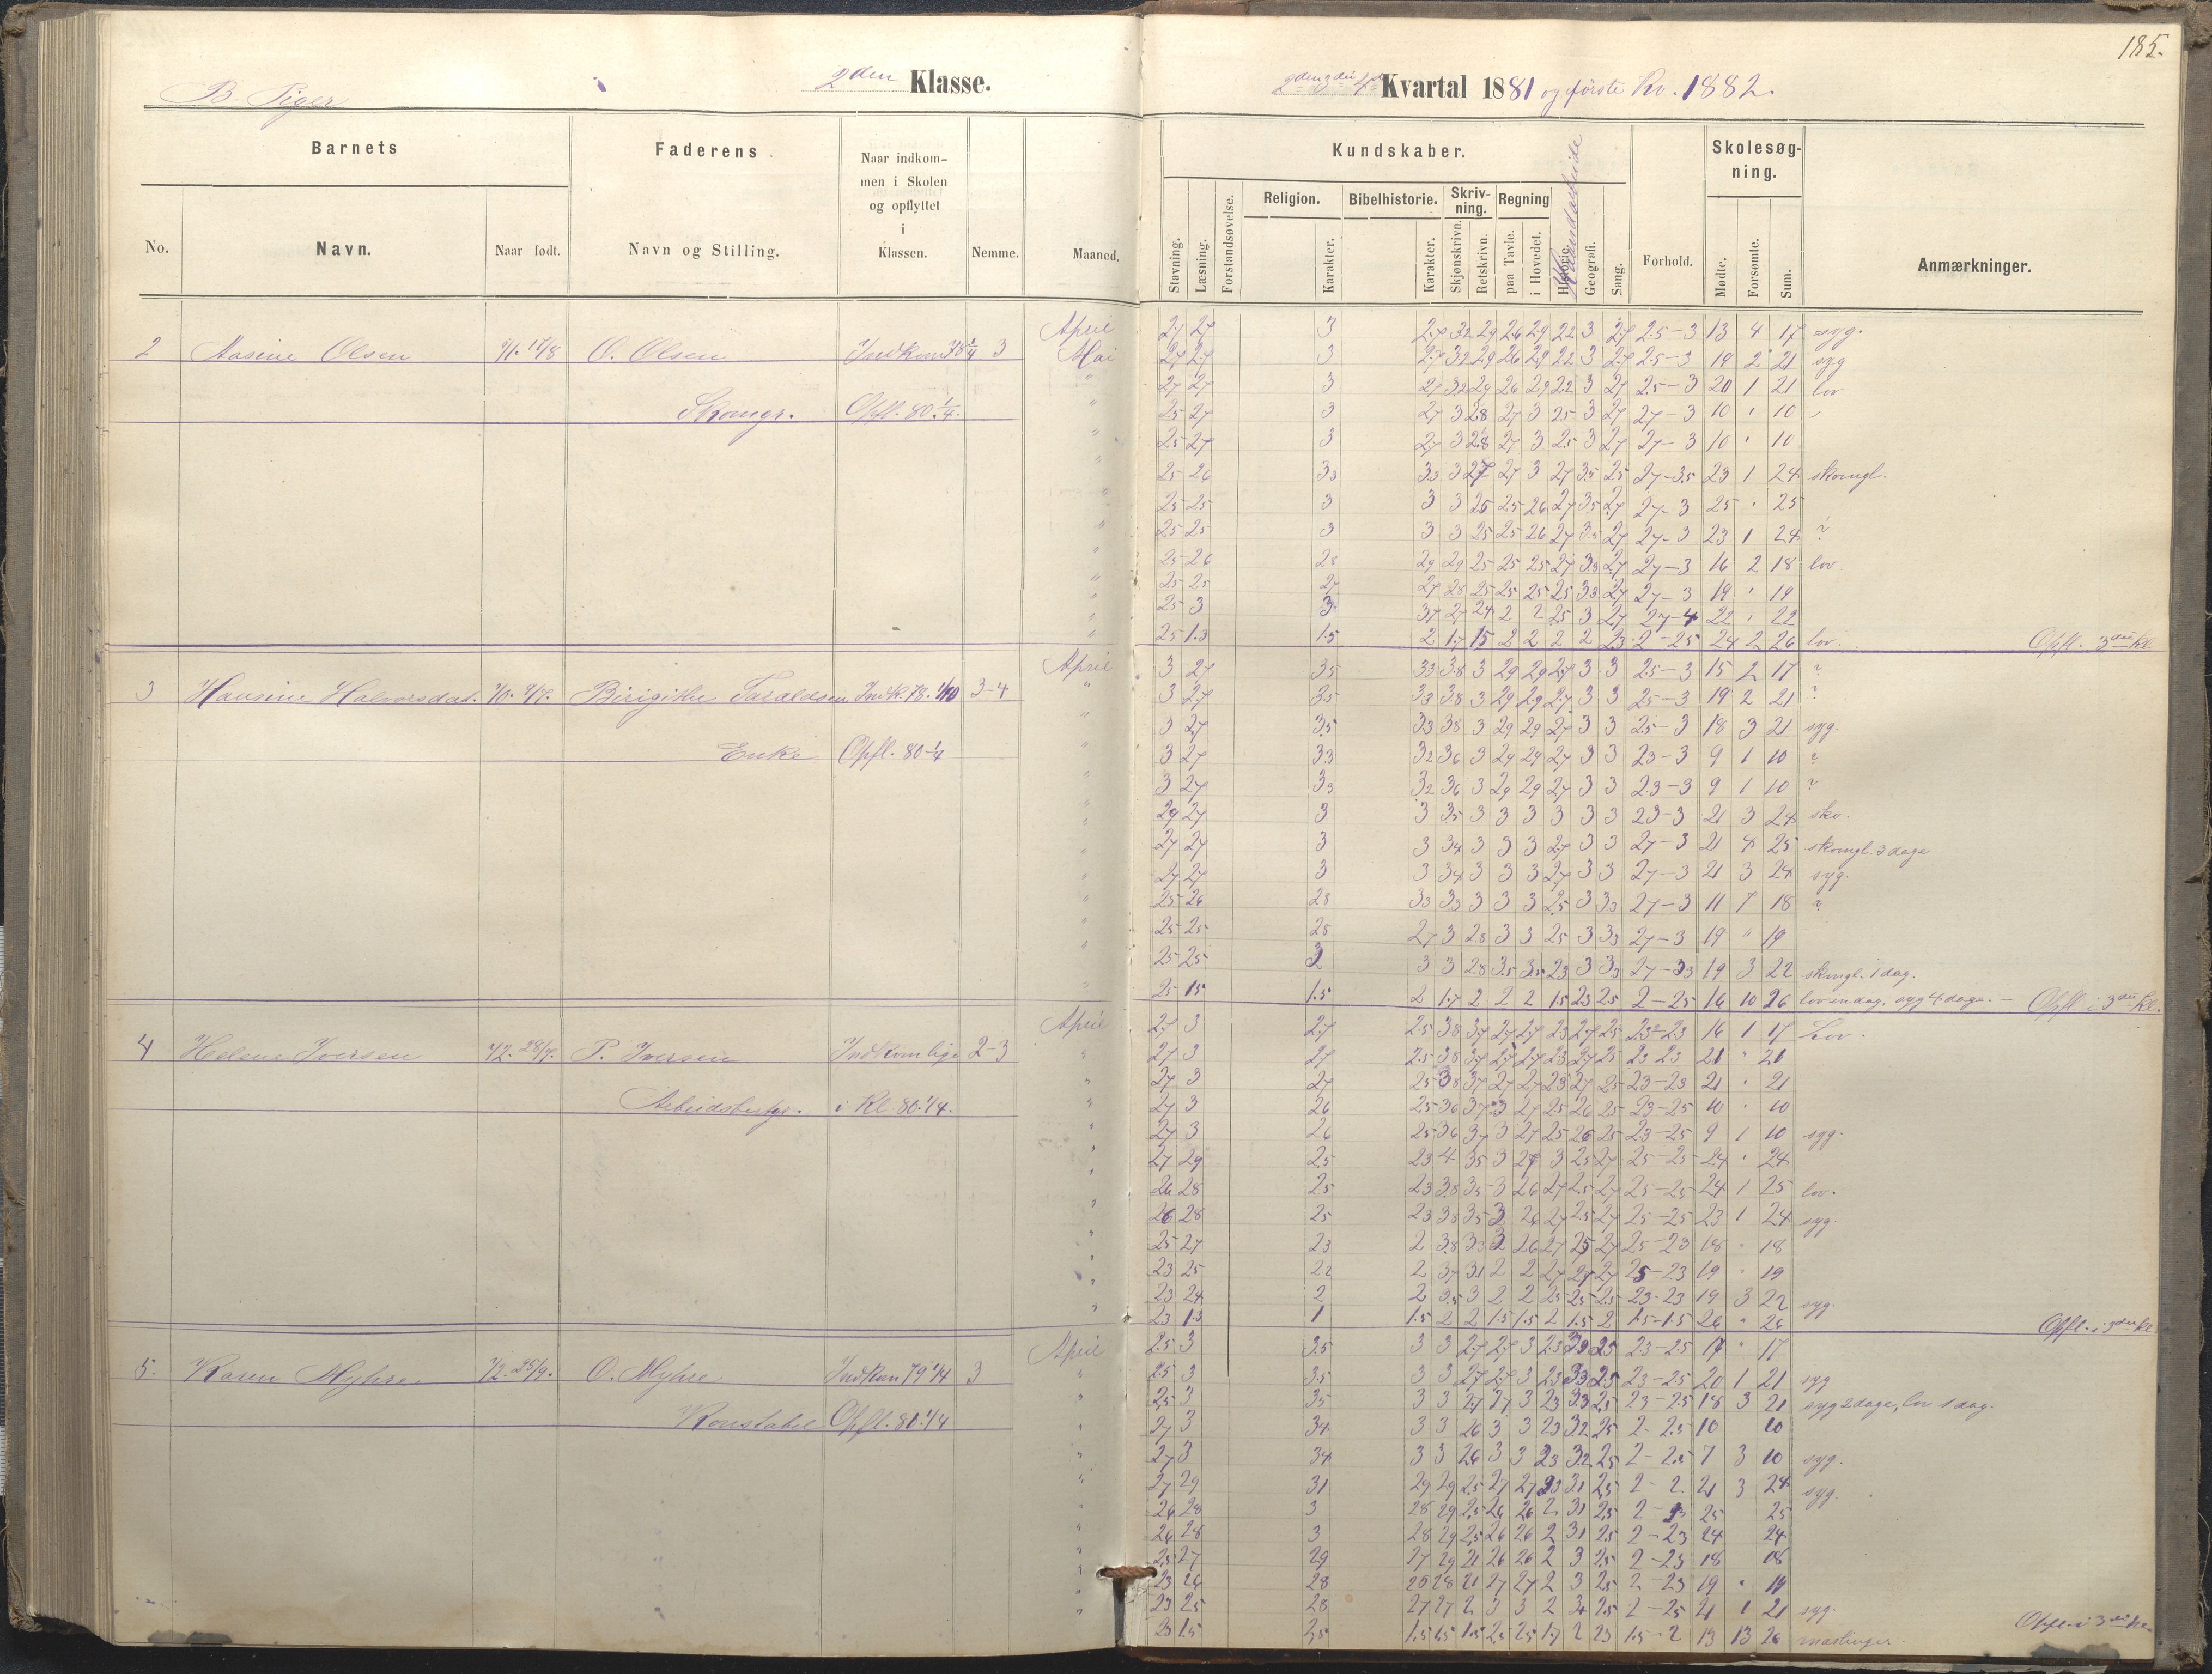 185.
B. Piger
2den Klasse.
2den 3die 4de Kvartal 1881 og første Kv. 1882.
Barnets
Faderens
Naar indkommen i Skolen og opflyttet i Klassen.
Nemme.
Maaned.
Kundskaber.
Forhold.
Skolesøgning.
Anmærkninger.
No.
Navn.
Naar født.
Navn og Stilling.
Stavning.
Læsning.
Forstandsøvelse.
Religion.
Karakter.
Bibelhistorie.
Karakter.
Skrivning.
Skjønskrivn.
Retskrivn.
Regning
paa Tavle.
i Hovedet.
Historie.
Haandarbeide
Geografi.
Sang.
Mødte.
Forsømte.
Sum.
2 Aasine Olsen O. Olsen 3 April
Mai
Skomgr. Opfl. 80. 1/4
27 27 3 27 32 29 26 29 22 3 27 25-3 13 4 17 syg.
27 27 3 27 32 29 26 29 22 3 27 25-3 19 2 21 syg
27 27 3 27 32 29 26 29 22 3 27 25-3 20 1 21 lov
25 27 3 27 3 28 27 3 25 3 27 27-3 10 " 10
25 27 3 27 3 28 27 3 25 3 27 27-3 10 " 10
25 26 33 33 3 27 27 3 27 35 25 27-35 23 1 24 skomgl.
25 25 3 3 3 25 25 26 27 35 27 27-3 25 " 25
25 25 3 3 3 25 25 26 27 35 27 27-3 23 1 24 ?
25 26 28 29 29 25 25 25 27 33 27 27-3 16 2 18 lov.
25 25 27 27 28 25 25 25 25 33 27 27-3 19 " 19
25 3 3 37 27 24 2 2 25 3 27 27-4 22 " 22
25 1.3 1.5 2 1.7 15 2 2 2 2 23 2-25 24 2 26 lov. Opfl. 3die Kl
3 Hansine Halvorsdat. Birigithe Taraldsen Indk. 78. 1/10 3-4 April
Enke Opfl. 80 1/4
3 27 35 33 38 3 29 29 27 3 3 25-3 15 2 17 ?
3 27 35 33 38 3 29 29 27 3 3 25-3 19 2 21 ?
3 27 35 33 38 3 29 29 27 3 3 25-3 18 3 21 syg.
3 27 33 32 36 3 29 29 27 3 3 23-3 9 1 10 ?
3 27 33 32 36 3 29 29 27 3 3 23-3 9 1 10 ?
29 27 3 3 35 3 3 3 3 3 3 23-3 21 3 24 sko.
27 27 3 3 34 3 3 3 27 3 3 27-3 21 4 25 skomgl. 3 dage
27 27 3 3 34 3 3 3 27 3 3 27-3 21 3 24 syg.
25 26 28 33 33 3 3 3 25 3 33 27-3 11 7 18 ?
25 25 28 27 3 28 3 3 25 3 33 27-3 19 " 19
25 25 3 3 28 35 35 23 3 33 27-33 19 3 22 skmgl. 1 dag.
25 15 1.5 2 1.7 2 2 2 1.5 23 25 2-25 16 10 26 lov en dag, syg 4 dage. - Opfl. i 3die Kl.
4 Helene Iversen 72. 28/7. P. Iversen Indkom lige 2-3 April
Arbeidsbestyr. i Kl 80. 1/4.
27 3 27 25 38 37 27 27 23 27 25 23-23 16 1 17 Lov.
27 3 27 25 38 37 27 27 23 27 25 23 23 21 " 21
27 3 27 25 38 37 27 27 23 27 25 23-23 21 " 21
27 3 26 25 36 37 3 27 25 26 25 23-25 10 " 10
27 3 26 25 36 37 3 27 25 26 25 23-25 9 1 10 syg.
27 29 25 23 4 35 3 27 3 25 27 25-25 24 " 24
26 28 25 23 38 35 3 26 27 25 27 25-25 24 1 25 lov.
26 28 25 23 38 35 3 26 27 25 27 25-25 23 1 24 syg.
25 27 23 2 38 33 3 26 27 25 27 25-23 18 " 18
23 25 22 2 37 31 2 2 27 27 27 25-23 19 " 19
23 24 2 2 35 3 2 2 25 25 25 23-23 19 3 22 syg.
23 1.3 1 1.5 2 2 1.5 1.5 2 1.5 2 1.5-1.5 26 " 26 Opfl. i 3die Kl
5. Karen Myhre 72. 25/9. O. Myhre Indkom 79 1/4 3 April
Konstabel Opfl. 81. 1/4
25 3 35 3 3 27 27 3 23 33 25 23-25 17 " 17
25 3 35 3 3 27 27 3 23 33 25 23-25 20 1 21 syg
25 3 35 3 3 27 27 3 23 33 25 23-25 18 3 21 syg 2 dage, lov 1 dag.
27 3 34 3 3 26 3 3 23 32 25 2-25 10 10
27 3 34 3 3 26 3 3 23 32 25 2-25 7 3 10 syg.
27 29 31 29 29 25 27 27 23 31 25 2-2 21 3 24 syg.
26 28 3 28 29 25 26 26 2 31 25 25 25
26 28 3 28 29 25 26 26 2 31 25 2-23 24 24
25 27 29 27 29 21 26 26 2 3 25 2-23 18 18
23 26 28 26 28 21 27 27 2 3 25 2-23 19 " 19
23 25 28 27 27 2 3 3 2 34 25 2-25 21 1 21 syg.
23 1.5 25 1.5 1.5 1.5 25 25 1.7 2 23 1.5-2 13 13 26 mæslinger. Opfl. i 3die Kl.